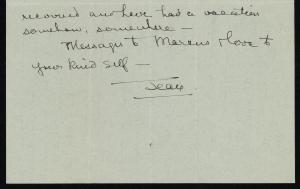 recovered and have had a vacation
somehow, somewhere —
Messages to Marcus & love to
your kind self —
Jean